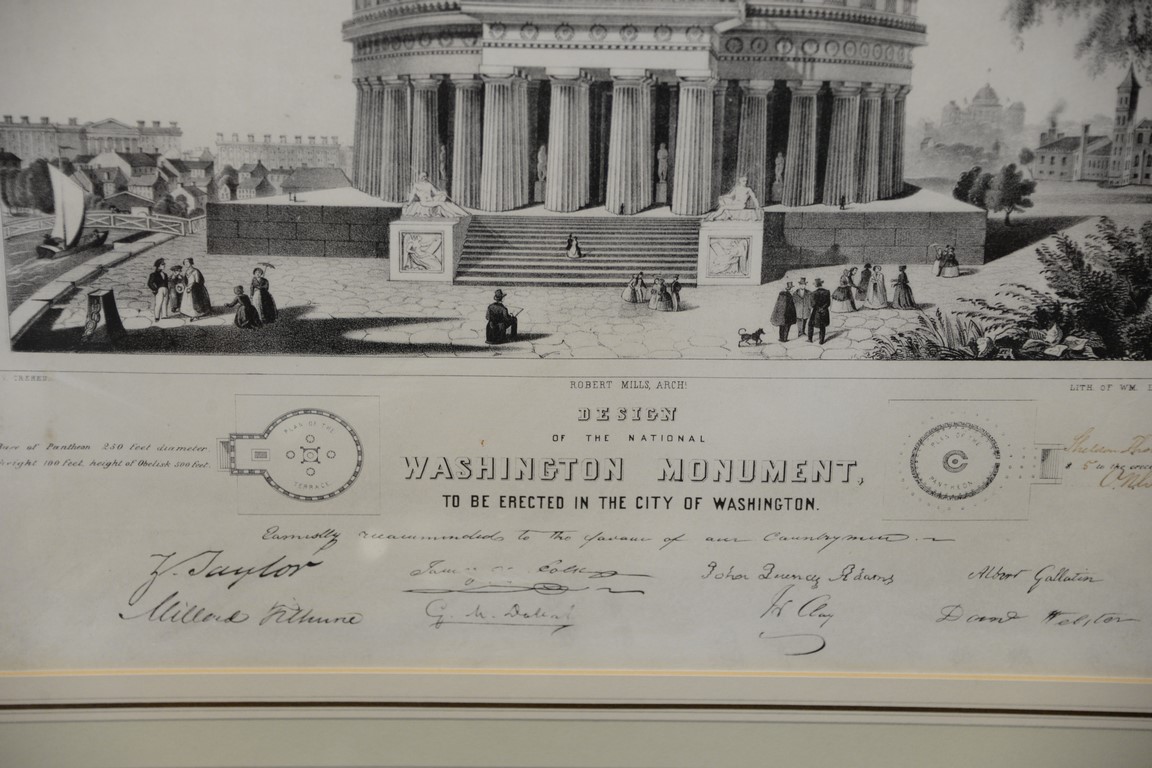 ROBERT MILLS, ARCHT
DESIGN
OF THE NATIONAL
WASHINGTON MONUMENT,
TO BE ERECTED IN THE CITY OF WASHINGTON.
LITH. OF WM.
of Pantheon 250 feet diameter
height 100 feet. height of Obelisk 500 feet.
PLAN OF THE
TERRACE
PLAN OF THE
PANTHEON
$ 5 to the
Earnestly recommended to the favour of our Countrymen.
Z. Taylor
James K. Polk
John Quincy Adams
Albert Gallatin
Millard Fillmore
G. M. Dallas
H Clay
Danl Webster